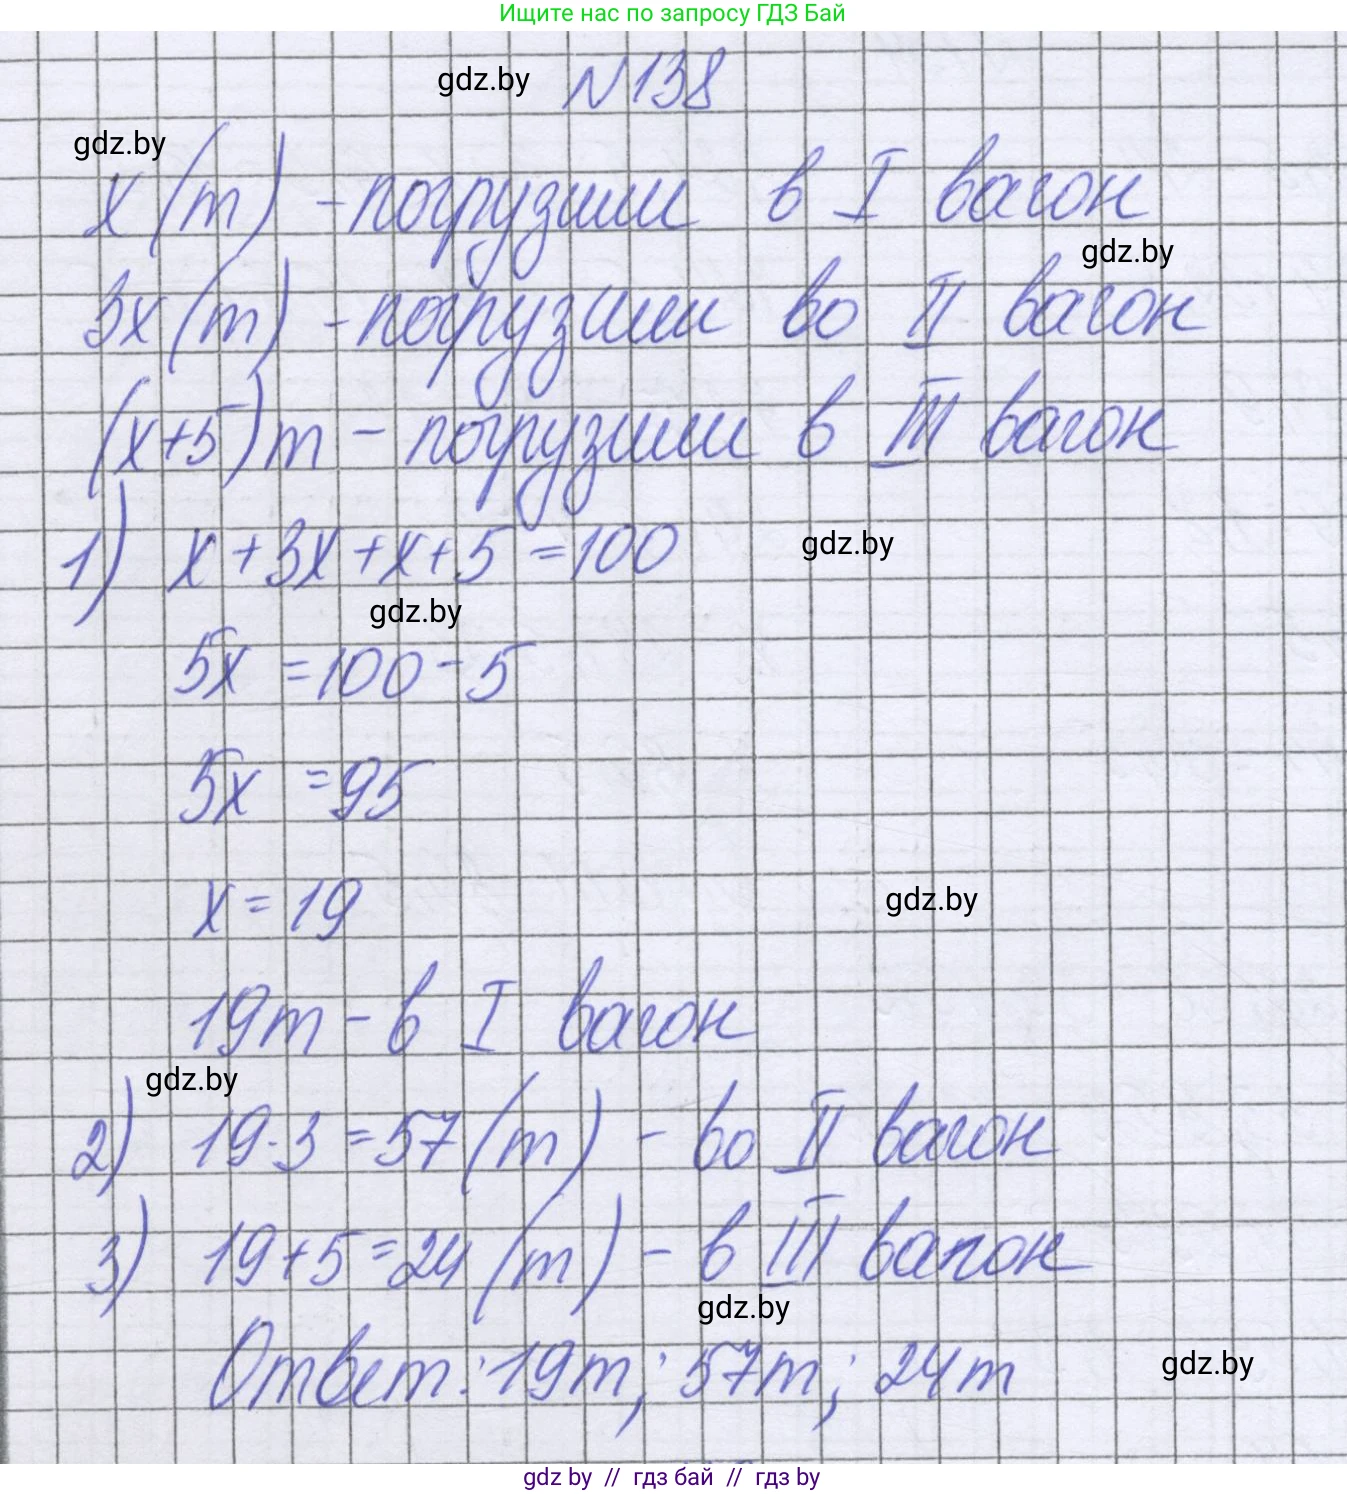 Ищите нас по запросу ГДЗ Бай
gdz.by
№138
gdz.by
x (т) - погрузили в I вагон
gdz.by
3x (т) - погрузили во II вагон
(x+5) т - погрузили в III вагон
1) x+3x+x+5=100
gdz.by
gdz.by
5x=100-5
5x=95
x=19
gdz.by
19т - в I вагон
gdz.by
2) 19·3=57 (т) - во II вагон
3) 19+5=24 (т) - в III вагон
gdz.by
Ответ: 19т; 57т; 24т
gdz.by
gdz by // гдз бай // гдз by